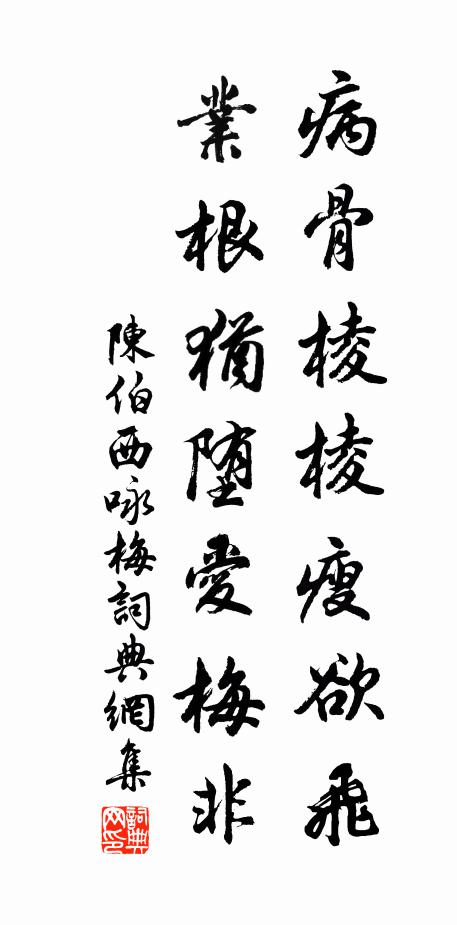 病骨棱棱瘦欲飛
業根猶堕愛梅非
陳伯西咏梅詞典網集
詞典網印